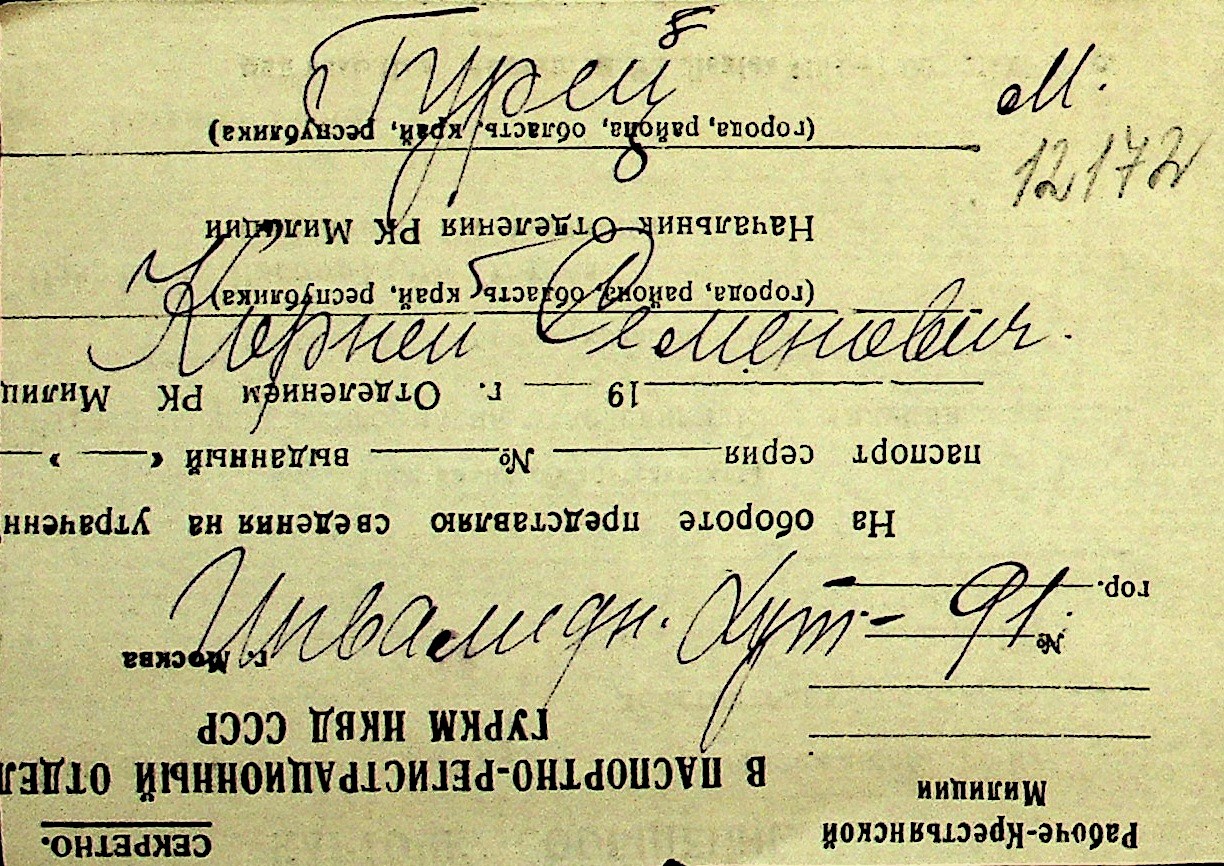 Гурей
М.
12172
Корней Семенович.
Инвалидн. Хут- 91.
СЕКРЕТНО.
Рабоче-Крестьянской
Милиции
В ПАСПОРТНО-РЕГИСТРАЦИОННЫЙ ОТДЕЛ
ГУРКМ НКВД СССР
г. Москва
№
гор.
На обороте представляю сведения на утраченн
паспорт серия № выданный « »
19 г. Отделением РК Милиц
(города, района, область, край, республика)
Начальник Отделения РК Милиции
(города, района, область, край, республика)